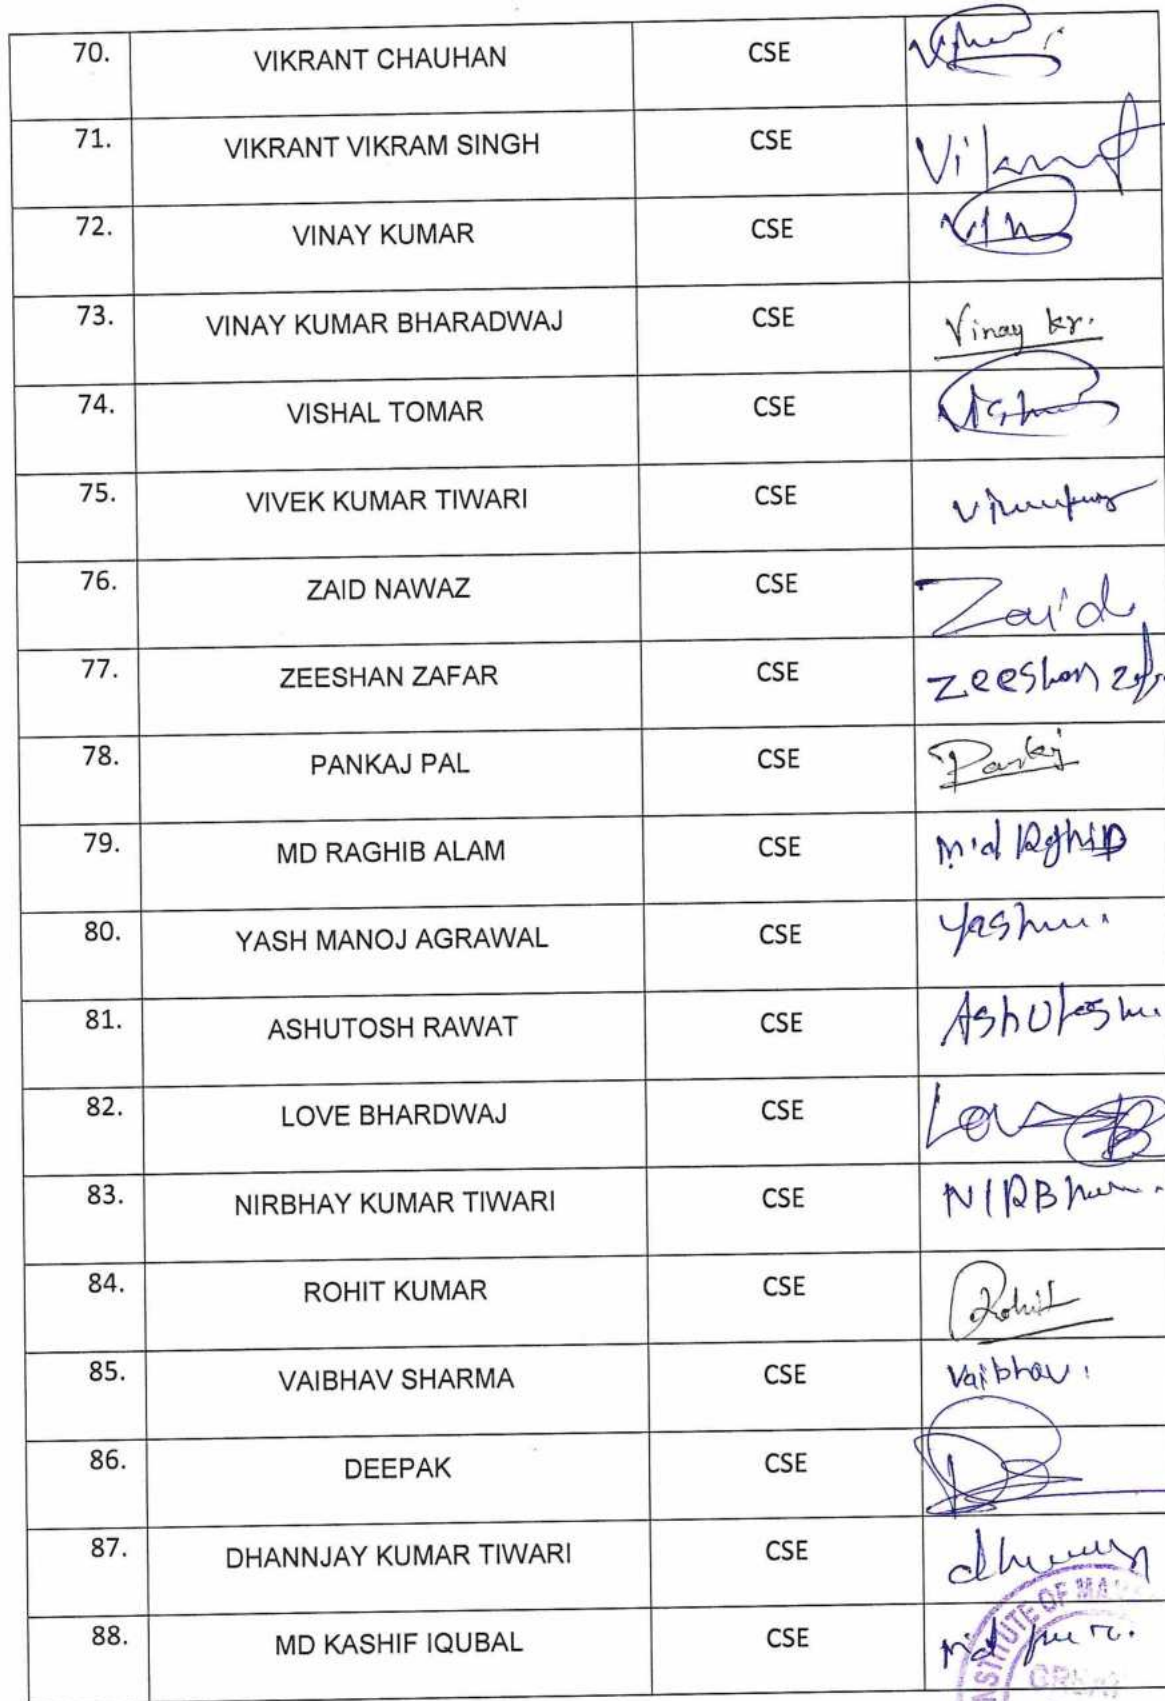 70. VIKRANT CHAUHAN CSE
71. VIKRANT VIKRAM SINGH CSE
72. VINAY KUMAR CSE
73. VINAY KUMAR BHARADWAJ CSE Vinay kr.
74. VISHAL TOMAR CSE
75. VIVEK KUMAR TIWARI CSE
76. ZAID NAWAZ CSE Zaid
77. ZEESHAN ZAFAR CSE Zeeshan
78. PANKAJ PAL CSE Pankaj
79. MD RAGHIB ALAM CSE
80. YASH MANOJ AGRAWAL CSE
81. ASHUTOSH RAWAT CSE
82. LOVE BHARDWAJ CSE
83. NIRBHAY KUMAR TIWARI CSE
84. ROHIT KUMAR CSE Rohit
85. VAIBHAV SHARMA CSE Vaibhav
86. DEEPAK CSE
87. DHANNJAY KUMAR TIWARI CSE
88. MD KASHIF IQUBAL CSE
OF